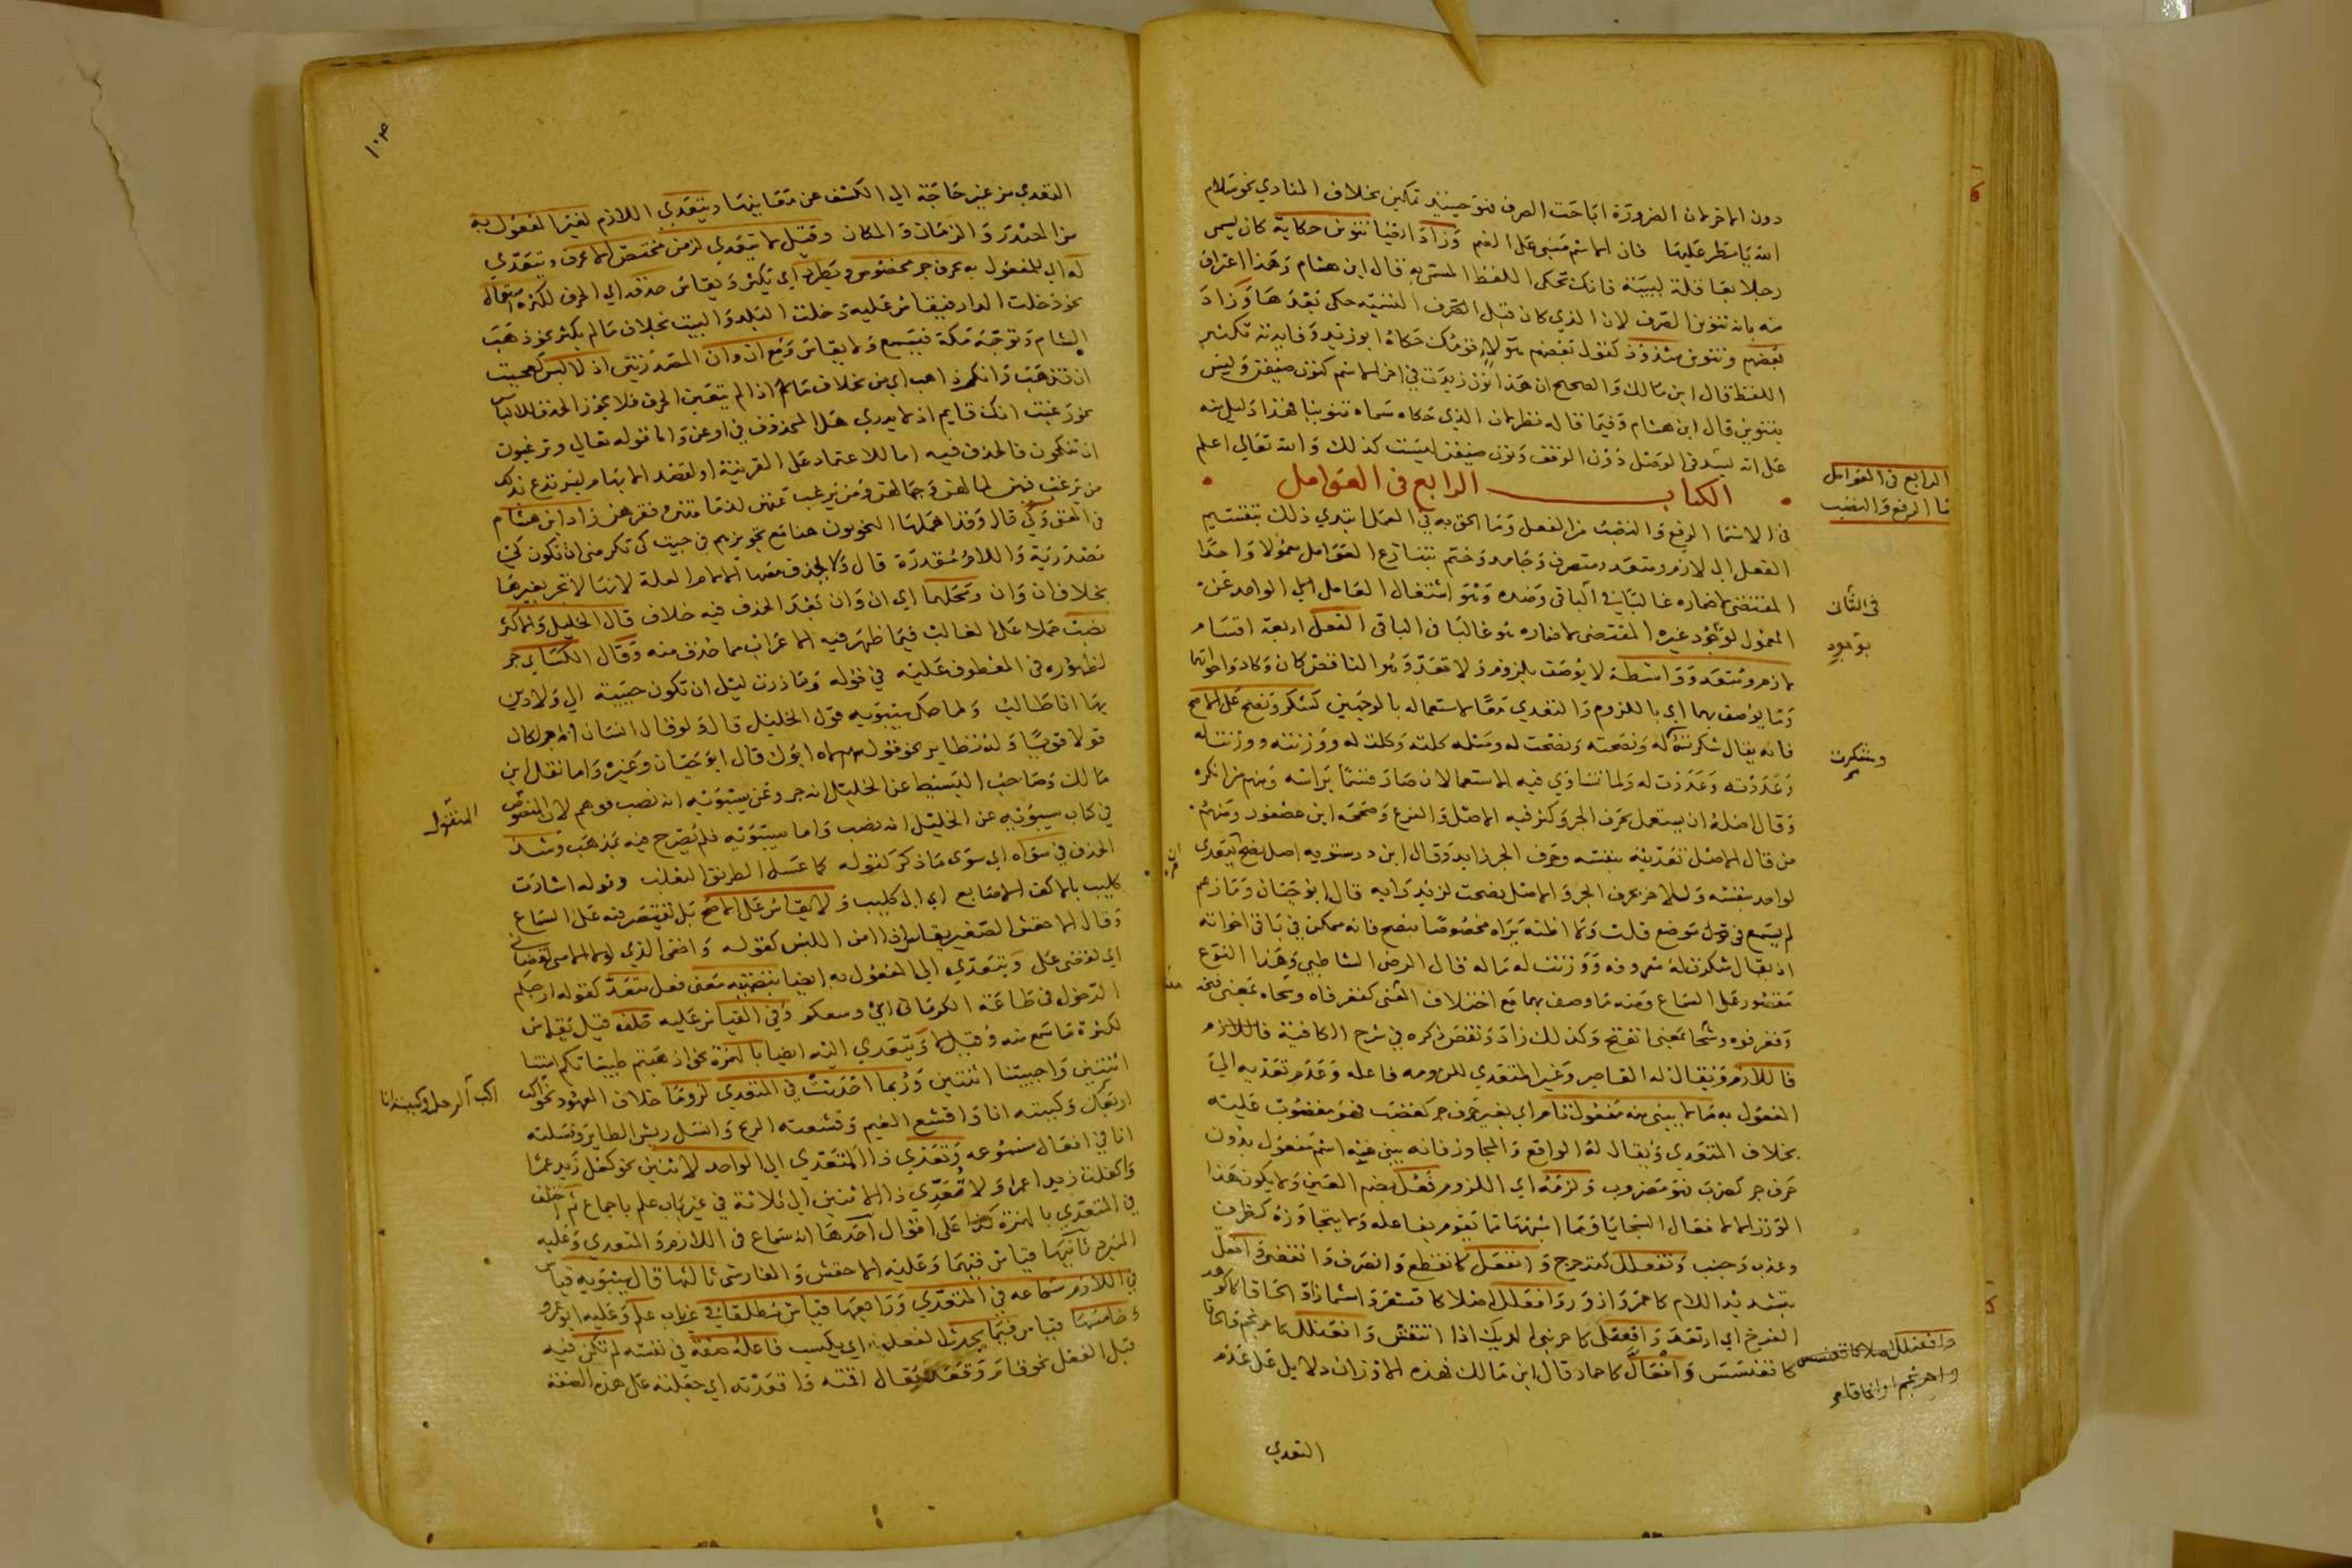 دون الاخر لان الضرورة اباحت الصرف فهو حينئذ تمكين بخلاف المنادي نحو سلام
الله يا مطر عليها فان الاسم مبني على الضم وزاد ايضا تنوين حكاية كان يسمى
رجلا بعاقلة لبيبة فانك تحكي اللفظ المسمى به قال ابن هشام وهذا اعتراف
منه بانه تنوين الصرف لان الذي كان قبل الصرف التسمية حكى بعدها وزاد
بعضهم وتنوين شذوذ كقول بعضهم هؤلاء قومك حكاه ابو زيد وفايدته تكثير
اللفظ قال ابن مالك والصحيح ان هذا نون زيدت في اخر الاسم كنون ضيفن وليس
بتنوين قال ابن هشام وفيما قاله نظر لان الذي حكاه سماه تنوينا فهذا دليل منه
على انه سمعه في الوصل دون الوقف ونون ضيفن ليست كذلك والله تعالي اعلم
الكتاب الرابع في العوامل
الرابع في العوامل
في الرفع والنصب
الفعل الى لازم ومتعد ومتصرف وجامد وختم بتنازع العوامل معمولا واحدا
المقتضي لاضماره غالبا في الباقي وضده وهو اشتغال العامل
في الثاني
المعمول لوجود غيره المقتضي لاضماره هو غالبا في الباقي الفعل اربعة اقسام
لازم ومتعد وواسطة لا يوصف بلزوم ولا تعد وهو الناقص كان وكاد واخواتها
وما يوصف بهما اي باللزوم والتعدي معا لاستعماله بالوجهين كشكر ونصح على الاصح
فانه يقال شكرته وشكرت له ونصحته ونصحت له ومثله كلته وكلت له ووزنته ووزنت له
وشكرت
وعددته وعددت له ولما تساوي فيه الاستعمالان صار قسما براسه ومنهم من انكره
وقال اصله ان يستعمل بحرف الجر وكثر فيه الاصل والفرع وصححه ابن عصفور ومنهم
من قال الاصل تعديته بنفسه وحرف الجر زايد وقال ابن درستويه اصل نصح يتعدى
لواحد بنفسه وللاخر بحرف الجر والاصل نصحت لزيد رايه قال ابو حيان وما زعم
لم يسمع في موضع قلت وما اظنه يراه مخصوصا بنصح فانه ممكن في باقي اخواته
اذ يقال شكرت له معروفه ووزنت له ماله قال الرضي الشاطبي وهذا النوع
مقصور على السماع ومنه ما وصف بهما مع اختلاف المعنى كفغر فاه وشحاه بمعنى فتحه
وفغر فوه وشحا بمعنى انفتح وكذلك زاد ونقص ذكره في شرح الكافية فاللازم
فاللازم ويقال له القاصر وغير المتعدي للزومه فاعله وعدم تعديه الى
المفعول به ما لا يبنى منه مفعول تام اي بغير حرف جر كغضب فهو مغضوب عليه
بخلاف المتعدي ويقال له الواقع والمجاوز فانه يبنى منه اسم مفعول بدون
حرف جر كضرب فهو مضروب ولزمه اي اللزوم فعل بضم العين ولا يكون هذا
الوزن الا لافعال السجايا وما اشبهها مما يقوم بفاعله ولا يتجاوزه كظرف
وعذب وجنب وتفعلل كتدحرج وانفعل كانقطع وانصرف وانقضى وافعل
بتشديد اللام كاحمر وازور وافعلل اصلا كاقشعر واشمأز او الحاقا كاكوهد
الفرخ اي ارتعد وافعنلى كاحرنبى الديك اذا انتفش وافعنلل كاحرنجم والحاقا
كاقعنسس وافعال كاحمار قال ابن مالك فهذه الاوزان دلايل على عدم
التعدي
١٠٣
التعدي من غير حاجة الي الكشف عن معانيها ويتعدي اللازم لغير المفعول به
من المصدر والزمان والمكان وقيل لا يتعدي لزمن مختص الا بحرف ويتعدي
اي للمفعول به بحرف جر مخصوص ويطرد اي يكثر ويقاس حذفه اي الحرف لكثرة استعماله
نحو دخلت الدار فيقاس عليه دخلت البلد والبيت بخلاف ما لم يكثر نحو ذهبت
الشام وتوجه مكة فيسمع ولا يقاس ومع ان وان المصدريتين اذ لا لبس كعجبت
ان تذهب وانك ذاهب اي من بخلاف ما اذا لم يتعين الحرف فلا يجوز الحذف للالباس
نحو رغبت انك قايم اذ لا يدري هل المحذوف في او عن واما قوله تعالي وترغبون
ان تنكحوهن فالحذف فيه اما للاعتماد على القرينة او لقصد الابهام ليرتدع بذلك
من يرغب فيهن لمالهن وجمالهن ومن يرغب عنهن لدمامتهن وفقرهن زاد ابن هشام
في المغني وكي قال وقد اهملها النحويون هنا مع تجويزهم في جيت كي تكرمني ان تكون كي
مصدرية واللام مقدرة قال ولا يحذف معها الا لام العلة لانها لا تجر بغيرها
بخلاف ان وان ومحلهما اي ان وان بعد الحذف فيه خلاف قال الخليل والاكثر
نصب حملا على الغالب فيما ظهر فيه الاعراب مما حذف منه وقال الكسايي جر
لظهوره في المعطوف عليه في قوله وما زرت ليلى ان تكون حبيبة الي ولا دين
بها انا طالب ولما حكى سيبويه قول الخليل قال ولو قال انسان انه جر لكان
قولا قويا وله نظاير نحو قولهم لاه ابوك قال ابو حيان وغيره واما نقل ابن
مالك وصاحب البسيط عن الخليل انه جر وعن سيبويه انه نصب فوهم لان المنصوص
المنقول
في كتاب سيبويه عن الخليل انه نصب واما سيبويه فلم يصرح فيه بمذهب وشذ
الحذف في سواه اي سوى ما ذكر كقوله كما عسل الطريق الثعلب وقوله اشارت
كليب بالاكف الاصابع اي الى كليب ولا يقاس على الاصح بل يقتصر فيه على السماع
وقال الاخفش الصغير يقاس اذا امن اللبس كقوله واخفى الذي لولا الاسى لقضاني
اي لقضى علي ويتعدي الي المفعول به ايضا بتضمينه معنى فعل متعد كقوله ارحبكم
الدخول في طاعة الكرماني اي وسعكم وفي القياس عليه خلف قيل يقاس
لكثرة ما سمع منه وقيل لا ويتعدي اليه ايضا بالهمزة نحو اذهبتم طيباتكم امتنا
اثنتين واحييتنا اثنتين وربما احدثت في المتعدي لزوما خلاف المعهود نحو اكب
اكب الرجل وكببته انا
وكببته انا واقشع الغيم وقشعته الريح وانسل ريش الطاير ونسلته
انا في افعال مسموعة وتعدي ذا المتعدي الي الواحد لاثنين نحو كفل زيد عمرا
واكفلت زيدا عمرا ولا تعدي ذا الاثنين الى ثلاثة في غير باب علم باجماع ثم اختلف
في المتعدي بالهمزة كذا على اقوال احدها انه سماع في اللازم والمتعدي وعليه
المبرد ثانيها قياس فيهما وعليه الاخفش والفارسي ثالثها قال سيبويه قياس
في اللازم سماعه في المتعدي ورابعها قياس مطلقا في غير باب علم وعليه ابو عمرو
وخامسها قياس فيما يحدث الفعلية اي يكسب فاعله صفة في نفسه لم تكن فيه
قبل الفعل نحو قام وقعد فيقال اقمته واقعدته اي جعلته على هذه الصفة